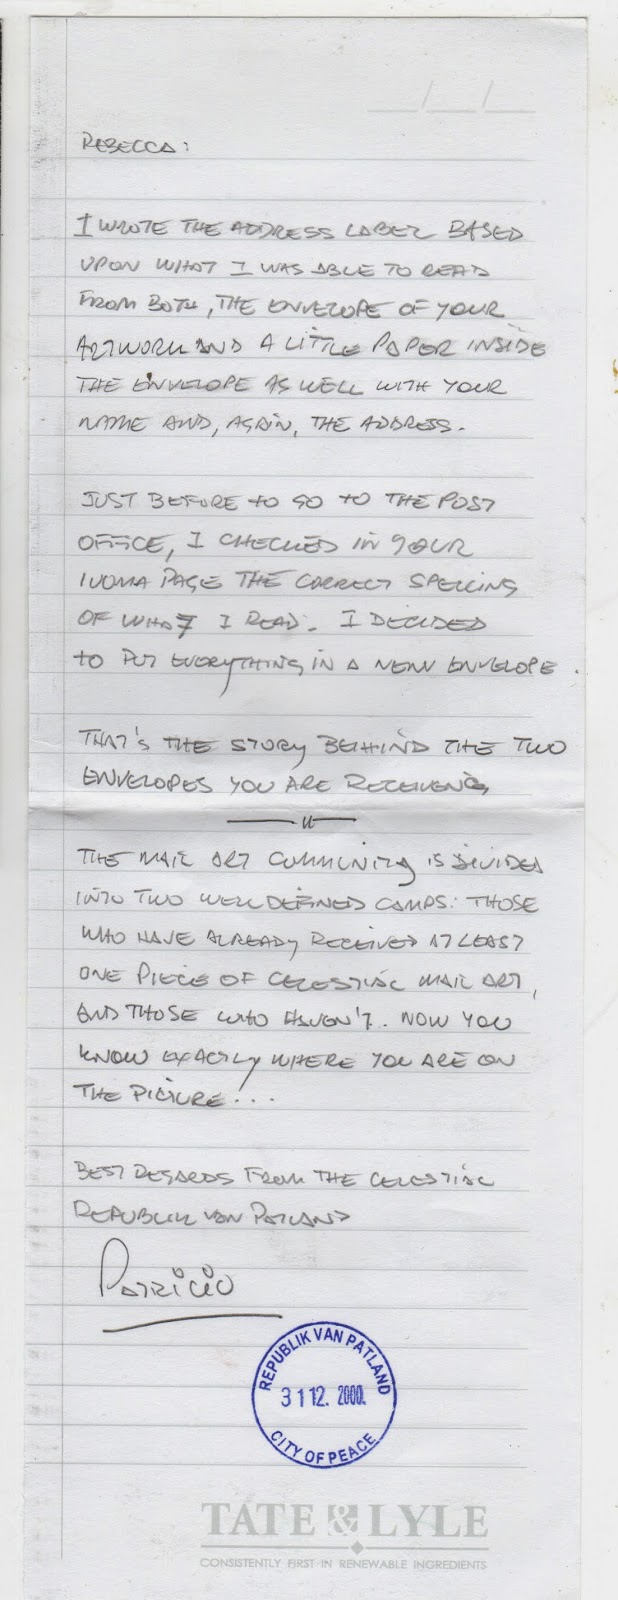 __/__/__
REBECCA:
I WROTE THE ADDRESS LABEL BASED
UPON WHAT I WAS ABLE TO READ
FROM BOTH, THE ENVELOPE OF YOUR
ARTWORK AND A LITTLE PAPER INSIDE
THE ENVELOPE AS WELL WITH YOUR
NAME AND, AGAIN, THE ADDRESS.
JUST BEFORE TO GO TO THE POST
OFFICE, I CHECKED IN YOUR
IUOMA PAGE THE CORRECT SPELLING
OF WHAT I READ. I DECIDED
TO PUT EVERYTHING IN A NEW ENVELOPE.
THAT'S THE STORY BEHIND THE TWO
ENVELOPES YOU ARE RECEIVING
THE MAIL ART COMMUNITY IS DIVIDED
INTO TWO WELL DEFINED CAMPS: THOSE
WHO HAVE ALREADY RECEIVED AT LEAST
ONE PIECE OF CELESTIAL MAIL ART,
AND THOSE WHO HAVEN'T. NOW YOU
KNOW EXACTLY WHERE YOU ARE ON
THE PICTURE...
BEST REGARDS FROM THE CELESTIAL
REPUBLIK VAN PATLAND
PATRICIO
REPUBLIK VAN PATLAND
31 12. 2000.
CITY OF PEACE
TATE & LYLE
CONSISTENTLY FIRST IN RENEWABLE INGREDIENTS